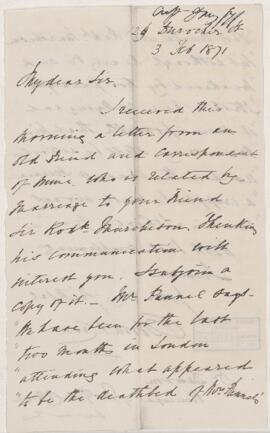 29 Durocher St
3 Feb 1871
My dear Sir,
I received this
morning a letter from an
old friend and correspondent
of mine who is related by
marriage to your friend
Sir Rodk Murchison. Thinking
his communication will
interest you, I subjoin a
copy of it. — Mr says
"We have been for the last
"two months in London
"attending what appeared
"to be the deathbed of Mrs